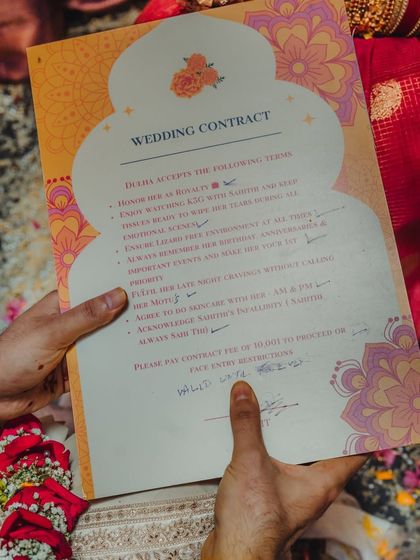 WEDDING CONTRACT
DULHA ACCEPTS THE FOLLOWING TERMS
• HONOR HER AS ROYALTY
• ENJOY WATCHING K3G WITH SAHITHI AND KEEP
TISSUES READY TO WIPE HER TEARS DURING ALL
EMOTIONAL SCENES
• ENSURE LIZARD FREE ENVIRONMENT AT ALL TIMES
• ALWAYS REMEMBER HER BIRTHDAY, ANNIVERSARIES &
IMPORTANT EVENTS AND MAKE HER YOUR 1ST
PRIORITY
FULFIL HER LATE NIGHT CRAVINGS WITHOUT CALLING
HER MOTU
• AGREE TO DO SKINCARE WITH HER - AM & PM
• ACKNOWLEDGE SAHITHI'S INFALLIBITY ( SAHITHI
ALWAYS SAHI THI)
PLEASE PAY CONTRACT FEE OF 10,001 TO PROCEED OR
FACE ENTRY RESTRICTIONS
VALID UNTIL
IT